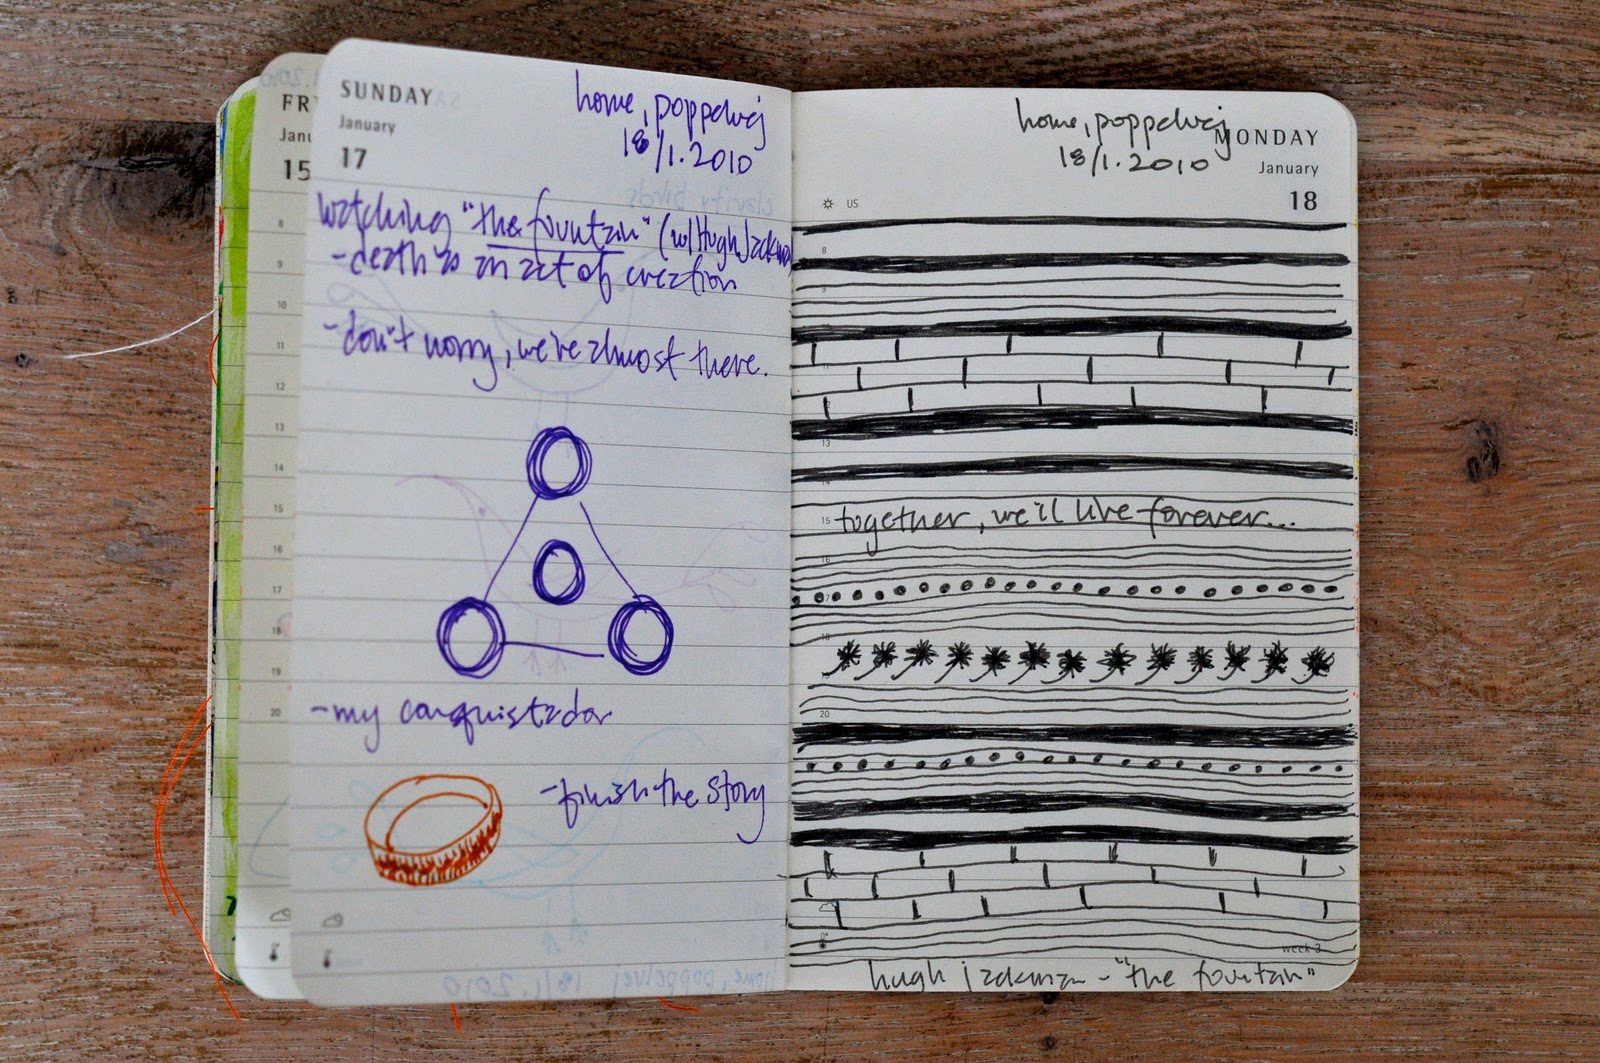 FR
Janu
15
8
9
10
11
12
13
14
15
16
17
18
19
20
SUNDAY
January
17
home, poppelvej
18/1.2010
watching "the fountain" (w/Hugh Jackman
- death is an act of creation
- don't worry, we've almost there.
- my conquistador
- finish the story
home, poppelvej
18/1.2010
MONDAY
January
18
US
8
9
11
12
13
14
15
together, we'll live forever...
16
17
18
20
week 3
hugh jackman - "the fountain"